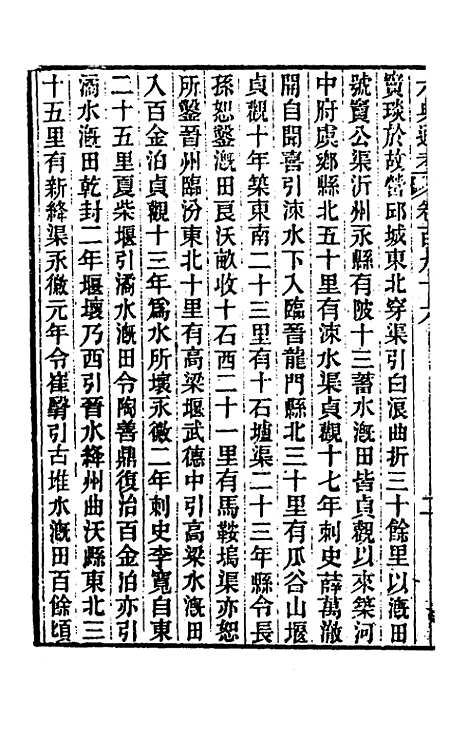 六典通考 卷百九十六 二
竇琰於故營邱城東北穿渠引白浪曲折三十餘里以溉田
號竇公渠沂州永縣有陂十三蓄水溉田皆貞觀以來築河
中府虞鄉縣北五十里有涑水渠貞觀十七年刺史薛萬澈
開自聞喜引涑水下入臨晉龍門縣北三十里有瓜谷山堰
貞觀十年築東南二十三里有十石壚渠二十三年縣令長
孫恕鑿溉田良沃畝收十石西二十一里有馬鞍塢渠亦恕
所鑿晉州臨汾東北十里有高梁堰武德中引高梁水溉田
入百金泊貞觀十三年為水所壞永徽二年刺史李寬自東
二十五里夏柴堰引潏水溉田令陶善鼎復治百金泊亦引
潏水溉田乾封二年堰壞乃西引晉水絳州曲沃縣東北三
十五里有新絳渠永徽元年令崔翳引古堆水溉田百餘頃